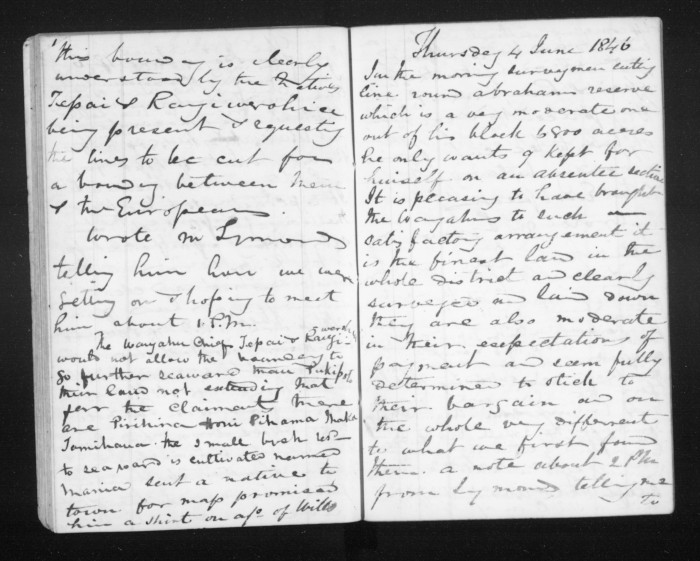 this boundy is clearly
understood by the Natives
Tepai & Rangiwerohia
being present & requesting
the lines to be cut for
a boundy between them
& the European.
wrote Mr Symonds
telling him how we were
getting on & hoping to meet
him about 1 P.M.
The Waiyahu Chief Tepai & Rangi
would not allow the boundary to
go further seaward than Pukipoto
their land not extending that
the Claiments there
are Pirihina Honi Pihama
Tamihana the small bush
to seaward is cultivated named
Mania sent a native to
town for map promised
him a shirt on a/c of Wills
Thursdey 4 June 1846
In the morning surveymen cutting
line round abrahams reserve
which is a very moderate one
out of his block 6800 acres
he only wants 9 kept for
himself on an absentee section
It is pleasing to have brought
the Waiyahus to such an
satisfactory arrangement it
is the finest land in the
whole district and clearly
surveyed and laid down
they are also moderate
in their expectations of
payment and seem fully
determined to stick to
their bargain and on
the whole very different
to what we first found
them. a note about 2 PM
from Symonds telling me
to